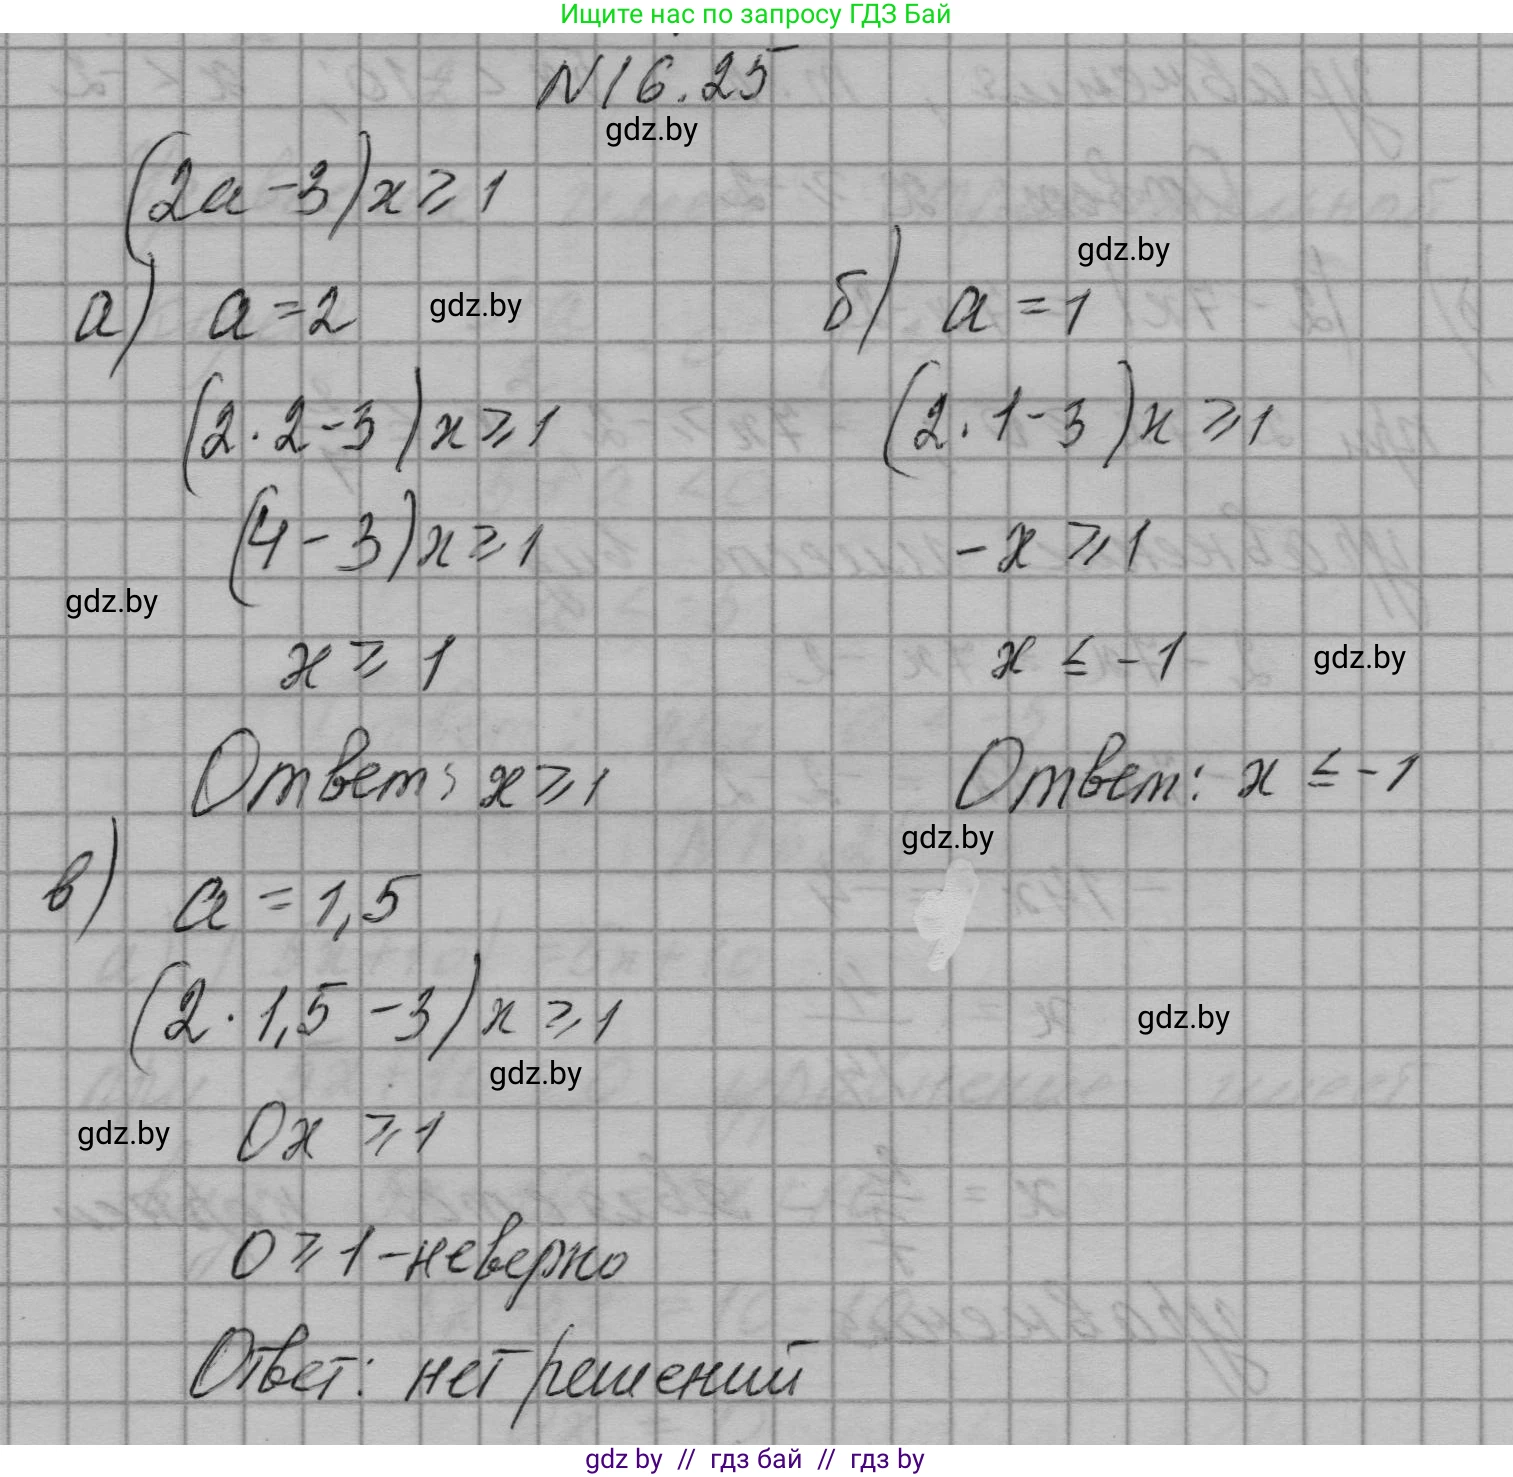 Ищите нас по запросу ГДЗ Бай
N16.25
gdz.by
(2a-3)x≥1
gdz.by
а) a=2
gdz.by
(2·2-3)x≥1
(4-3)x≥1
gdz.by
x≥1
Ответ: x≥1
б) a=1
(2·1-3)x≥1
-x≥1
x≤-1
gdz.by
Ответ: x≤-1
gdz.by
в) a=1,5
(2·1,5-3)x≥1
gdz.by
gdz.by
gdz.by
0x≥1
0≥1-неверно
Ответ: нет решений
gdz by // гдз бай // гдз by